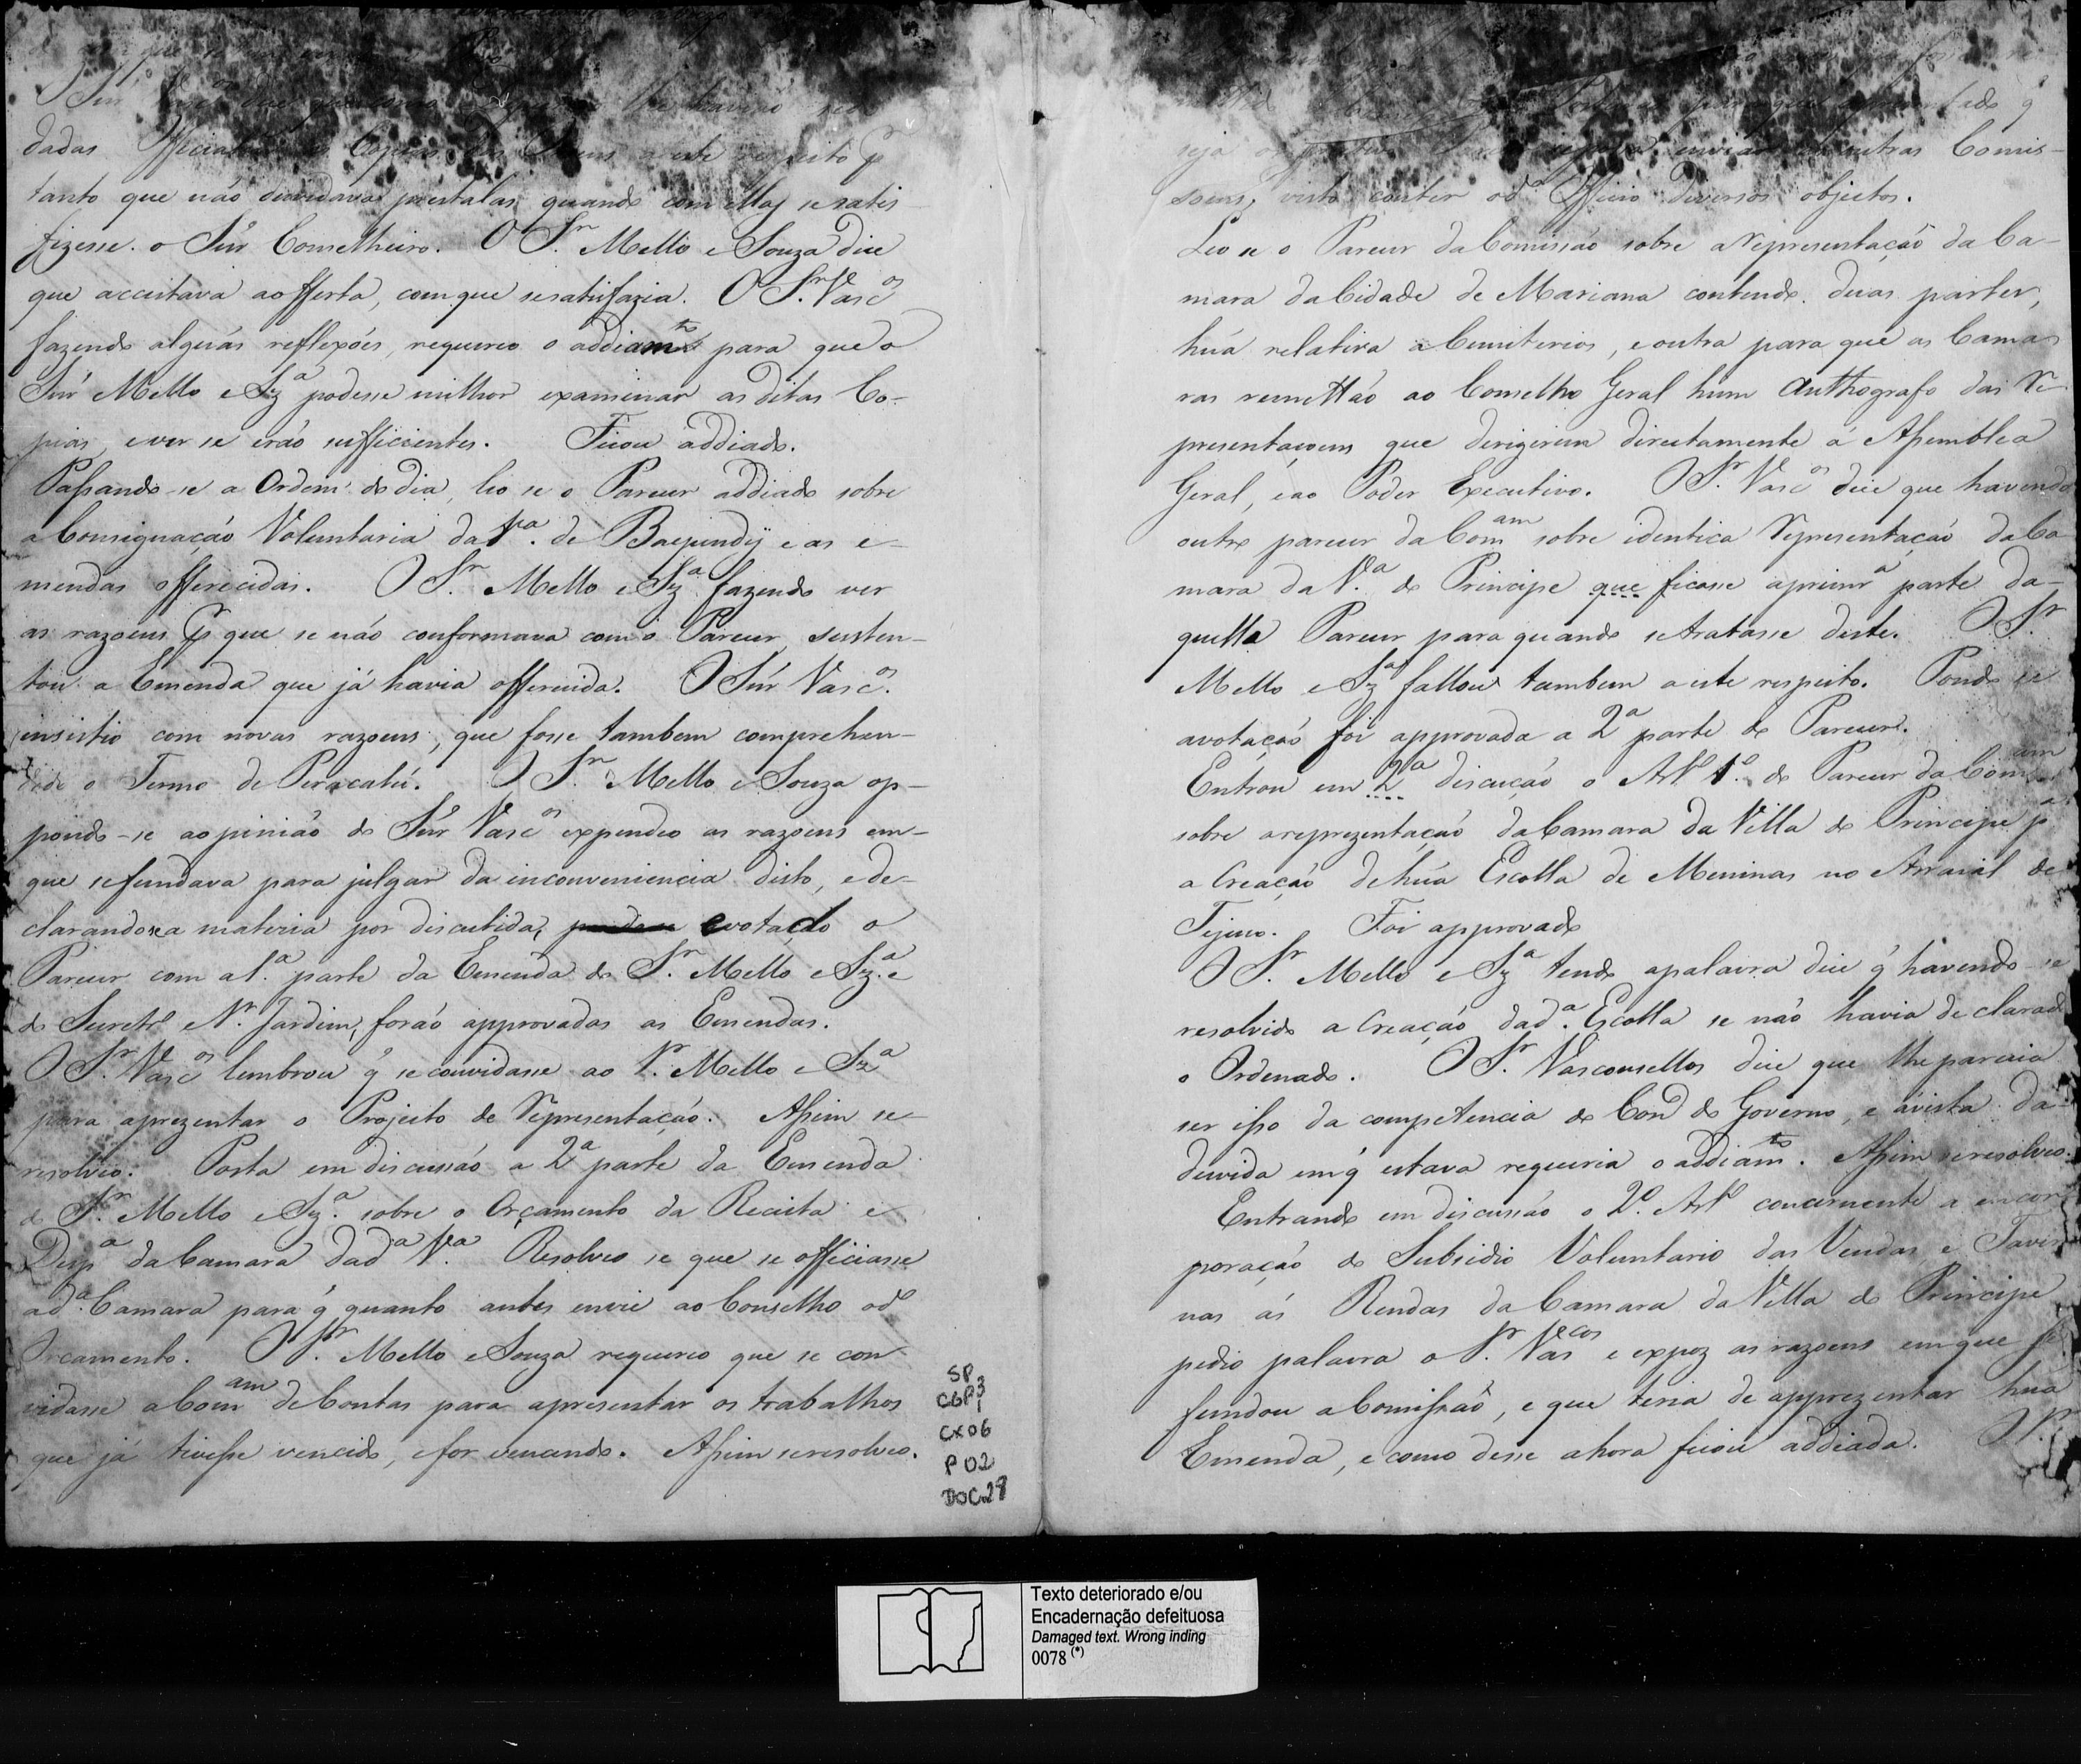 dadas
tanto que não duvidava prestalas quando com ellas se satis
fizesse o Sñr Conselheiro. O S.r Mello e Souza dice
que acceitava aofferta, comque sesatisfazia. O S.r Vasc.os
fazendo alguãs reflexões, requereo o addiam.to para que o
Sñr Mello e Sz.a podesse milhor examinar as ditas Co-
pias, e ver se erão sufficientes. Ficou addiado.
Passando-se a Ordem do dia, leo se o Parecer addiado sobre
a Consignação Voluntaria da V.a de Baependÿ e as e-
mendas offerecidas. O S.r Mello e Sz.a fazendo ver
as razoens p que se não conformava com o Parecer, susten-
tou a Emenda que já havia offerecido. O Sñr Vasc.os
insistio com novas razoens, que fosse tambem comprehen-
dido o Termo de Peracatú. O S.r Mello e Souza op-
pondo-se aopinião do Sñr Vasc.os expendeo as razoens em-
que sefundava para julgar da inconveniencia disto, e de-
clarandosea materia por discutida, evotado o
Parecer com a 1.a parte da Emenda do S.r Mello e Sz.a e
do Secretr.o N.r Jardim, forão approvadas as Emendas.
O S.r Vasc.os lembrou q̃ se convidasse ao S.r Mello e Sz.a
para aprezentar o Projecto de Representação. Assim se
resolveo. Posta em discussão a 2.a parte da Emenda
do S.r Mello e Sz.a sobre o Orçamento da Receita e
Desp.a da Camara dad.a V.a Resolveo se que se officiasse
ad.a Camara para q̃ quanto antes envie ao Conselho od.o
Orcamento. O S.r Mello e Souza requereo que se con
vidasse a Com.am de Contas para apresentar os trabalhos
que já tivesse vencido, e for vencendo. Assim seresolveo.
SP
CGP3
1
CX06
P02
DOC.28
seja outras Comis-
soens, visto conter od.o Officio diversos objectos.
Leo se o Parecer da Comissão sobre a Representação da Ca-
mara da Cidade de Mariana contendo duas partes,
huã relativa a Cemiterios, e outra para que as Cama
ras remettão ao Conselho Geral hum Authografo das Re-
presentaçoens que dirigirem directamente á Assemblea
Geral, e ao Poder Executivo. O S.r Vasc.os dice que havendo
outro parecer da Com.am sobre identica Representação da Ca
mara da V.a do Principe que ficasse aprimr.a parte da-
quelle Parecer para quando setratasse deste. O S.r
Mello e Sz.a fallou tambem a este respeito. Pondo se
avotação foi approvada a 2.a parte do Parecer.
Entrou em 2.a discução o Art.o 1.o do Parecer da Com.am
sobre areprezentação da Camara da Villa do Principe p.a
a Creação de huã Escolla de Meninas no Arraial do
Tejuco. Foi approvado
O S.r Mello e Sz.a tendo apalavra dice q̃ havendo-se
resolvido a Creação dad.a Escolla se não havia declarado
o Ordenado. O S.r Vasconsellos dice que lhe parecia
ser isso da competencia do Con.o do Governo, e ávista da
duvida emq̃ estava requeria o addiam.to. Assim seresolveo.
Entrando em discussão o 2.o Art.o concernente a encor
poração do Subsidio Voluntario das Vendas e Taver
nas ás Rendas da Camara da Villa do Principe
pedio palavra o S.r Vas.cos e expoz as razoens emque se
fundou a Comissão, e que teria de apprezentar huã
Emenda, e como desse ahora ficou addiada. O S.r
Texto deteriorado e/ou
Encadernação defeituosa
Damaged text. Wrong inding
0078 (*)